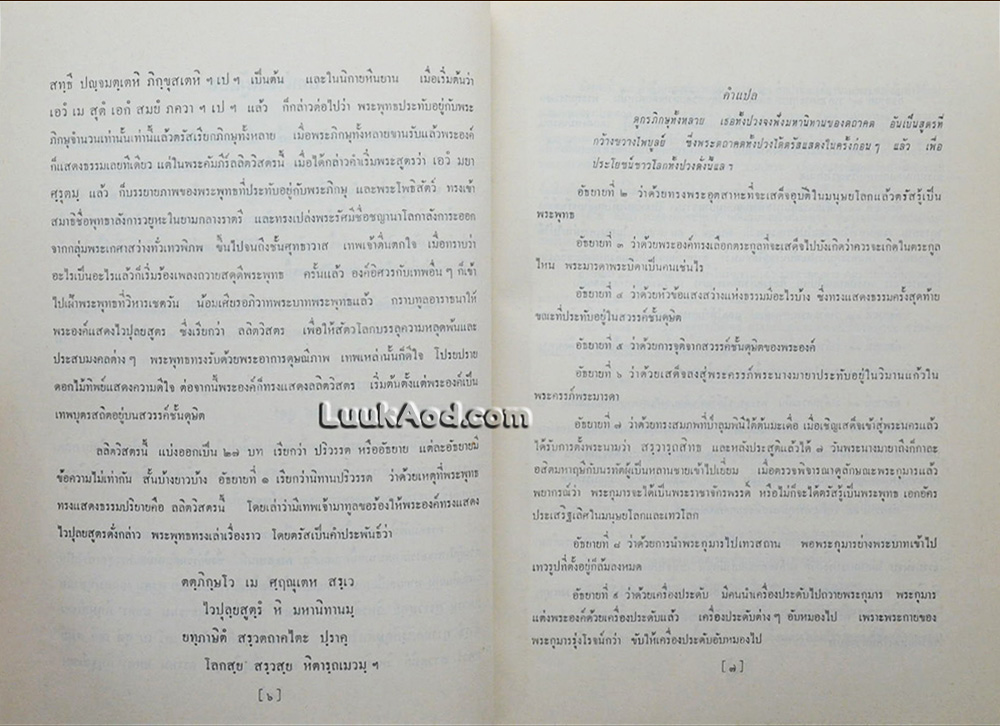 สทฺธึ ปญฺจมตฺเตหิ ภิกฺขุสเตหิ ฯ เป ฯ เป็นต้น และในนิกายหินยาน เมื่อเริ่มต้นว่า
เอวํ เม สุตํ เอกํ สมยํ ภควา ฯ เป ฯ แล้ว ก็กล่าวต่อไปว่า พระพุทธประทับอยู่กับพระ
ภิกษุจำนวนเท่านั้นเท่านี้แล้วตรัสเรียกภิกษุทั้งหลาย เมื่อพระภิกษุทั้งหลายขานรับแล้วพระองค์
ก็แสดงธรรมเลยทีเดียว แต่ในพระคัมภีร์ลลิตวิสตรนี้ เมื่อได้กล่าวคำเริ่มพระสูตรว่า เอวํ มยา
ศฺรุตมฺ แล้ว ก็บรรยายภาพของพระพุทธที่ประทับอยู่กับพระภิกษุ และพระโพธิสัตว์ ทรงเข้า
สมาธิชื่อพุทธาลังการวยูหะในยามกลางราตรี และทรงเปล่งพระรัศมีชื่อชญานาโลกาลังการะออก
จากกลุ่มพระเกศาสว่างทั่วเทวพิภพ ขึ้นไปจนถึงชั้นศุทธาวาส เทพเจ้าตื่นตกใจ เมื่อทราบว่า
อะไรเป็นอะไรแล้วก็เริ่มร้องเพลงถวายสดุดีพระพุทธ ครั้นแล้ว องค์อิศวรกับเทพอื่น ๆ ก็เข้า
ไปเฝ้าพระพุทธที่วิหารเชตวัน น้อมเศียรอภิวาทพระบาทพระพุทธแล้ว กราบทูลอาราธนาให้
พระองค์แสดงไวปุลยสูตร ซึ่งเรียกว่า ลลิตวิสตร เพื่อให้สัตวโลกบรรลุความหลุดพ้นและ
ประสบมงคลต่าง ๆ พระพุทธทรงรับด้วยพระอาการดุษณีภาพ เทพเหล่านั้นก็ดีใจ โปรยปราย
ดอกไม้ทิพย์แสดงความดีใจ ต่อจากนี้พระองค์ก็ทรงแสดงลลิตวิสตร เริ่มต้นตั้งแต่พระองค์เป็น
เทพบุตรสถิตอยู่บนสวรรค์ชั้นดุษิต
ลลิตวิสตรนี้ แบ่งออกเป็น ๒๗ บท เรียกว่า ปริวรรต หรืออัธยาย แต่ละอัธยายมี
ข้อความไม่เท่ากัน สั้นบ้างยาวบ้าง อัธยายที่ ๑ เรียกว่านิทานปริวรรต ว่าด้วยเหตุที่พระพุทธ
ทรงแสดงธรรมปริยายคือ ลลิตวิสตรนี้ โดยเล่าว่ามีเทพเจ้ามาทูลขอร้องให้พระองค์ทรงแสดง
ไวปุลยสูตรดั่งกล่าว พระพุทธทรงเล่าเรื่องราว โดยตรัสเป็นคำประพันธ์ว่า
ตตฺภิกฺษโว เม ศฺฤณุเตห สรฺเว
ไวปุลฺยสูตฺรํ หิ มหานิทานมฺ
ยทฺภาษิตํ สรฺวตถาคไตะ ปฺราคฺ
โลกสฺย สรฺวสฺย หิตารฺถเมวมฺ ฯ
[ ๖ ]
คำแปล
ดูกรภิกษุทั้งหลาย เธอทั้งปวงจงฟังมหานิทานของตถาคต อันเป็นสูตรที่
กว้างขวางไพบูลย์ ซึ่งพระตถาคตทั้งปวงได้ตรัสแสดงในครั้งก่อน ๆ แล้ว เพื่อ
ประโยชน์ชาวโลกทั้งปวงดั่งนี้แล ฯ
อัธยายที่ ๒ ว่าด้วยทรงพระอุตสาหะที่จะเสด็จอุบัติในมนุษยโลกแล้วตรัสรู้เป็น
พระพุทธ
อัธยายที่ ๓ ว่าด้วยพระองค์ทรงเลือกตระกูลที่จะเสด็จไปบังเกิดว่าควรจะเกิดในตระกูล
ไหน พระมารดาพระบิดาเป็นคนเช่นไร
อัธยายที่ ๔ ว่าด้วยหัวข้อแสงสว่างแห่งธรรมมีอะไรบ้าง ซึ่งทรงแสดงธรรมครั้งสุดท้าย
ขณะที่ประทับอยู่ในสวรรค์ชั้นดุษิต
อัธยายที่ ๕ ว่าด้วยการจุติจากสวรรค์ชั้นดุษิตของพระองค์
อัธยายที่ ๖ ว่าด้วยเสด็จลงสู่พระครรภ์พระนางมายาประทับอยู่ในวิมานแก้วใน
พระครรภ์พระมารดา
อัธยายที่ ๗ ว่าด้วยทรงสมภพที่ป่าลุมพินีใต้ต้นมะเดื่อ เมื่อเชิญเสด็จเข้าสู่พระนครแล้ว
ได้รับการตั้งพระนามว่า สรฺวารฺถสิทธ และหลังประสูติแล้วได้ ๗ วันพระนางมายาถึงก็กาละ
อสิตมหาฤษีกับนรทัตผู้เป็นหลานชายเข้าไปเยี่ยม เมื่อตรวจพิจารณาดูลักษณะพระกุมารแล้ว
พยากรณ์ว่า พระกุมารจะได้เป็นพระราชาจักรพรรดิ์ หรือไม่ก็จะได้ตรัสรู้เป็นพระพุทธ เอกอัคร
ประเสริฐเลิศในมนุษยโลกและเทวโลก
อัธยายที่ ๘ ว่าด้วยการนำพระกุมารไปเทวสถาน พอพระกุมารย่างพระบาทเข้าไป
เทวรูปที่ตั้งอยู่ก็ล้มลงหมด
อัธยายที่ ๙ ว่าด้วยเครื่องประดับ มีคนนำเครื่องประดับไปถวายพระกุมาร พระกุมาร
แต่งพระองค์ด้วยเครื่องประดับแล้ว เครื่องประดับต่าง ๆ อับหมองไป เพราะพระกายของ
พระกุมารรุ่งโรจน์กว่า ขับให้เครื่องประดับอับหมองไป
[ ๗ ]
LuukAod.com